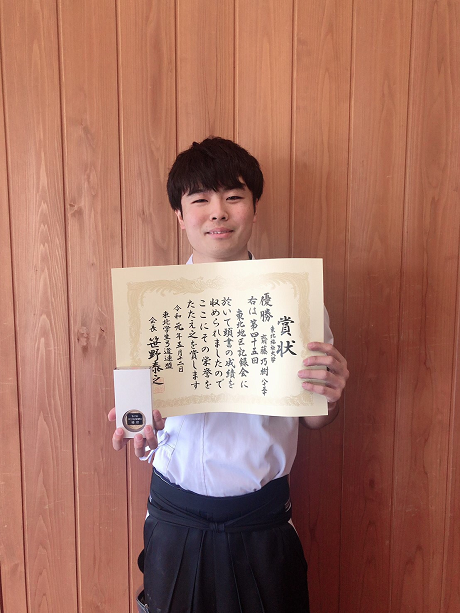 賞状
東北福祉大学
優勝 齋藤巧樹
右は第四十五回
東北地区記録会に
於いて頭書の成績を
収められましたので
ここにその栄誉を
たたえ之を賞します
令和元年五月十二日
東北学生弓道連盟
会長 笹野泰之